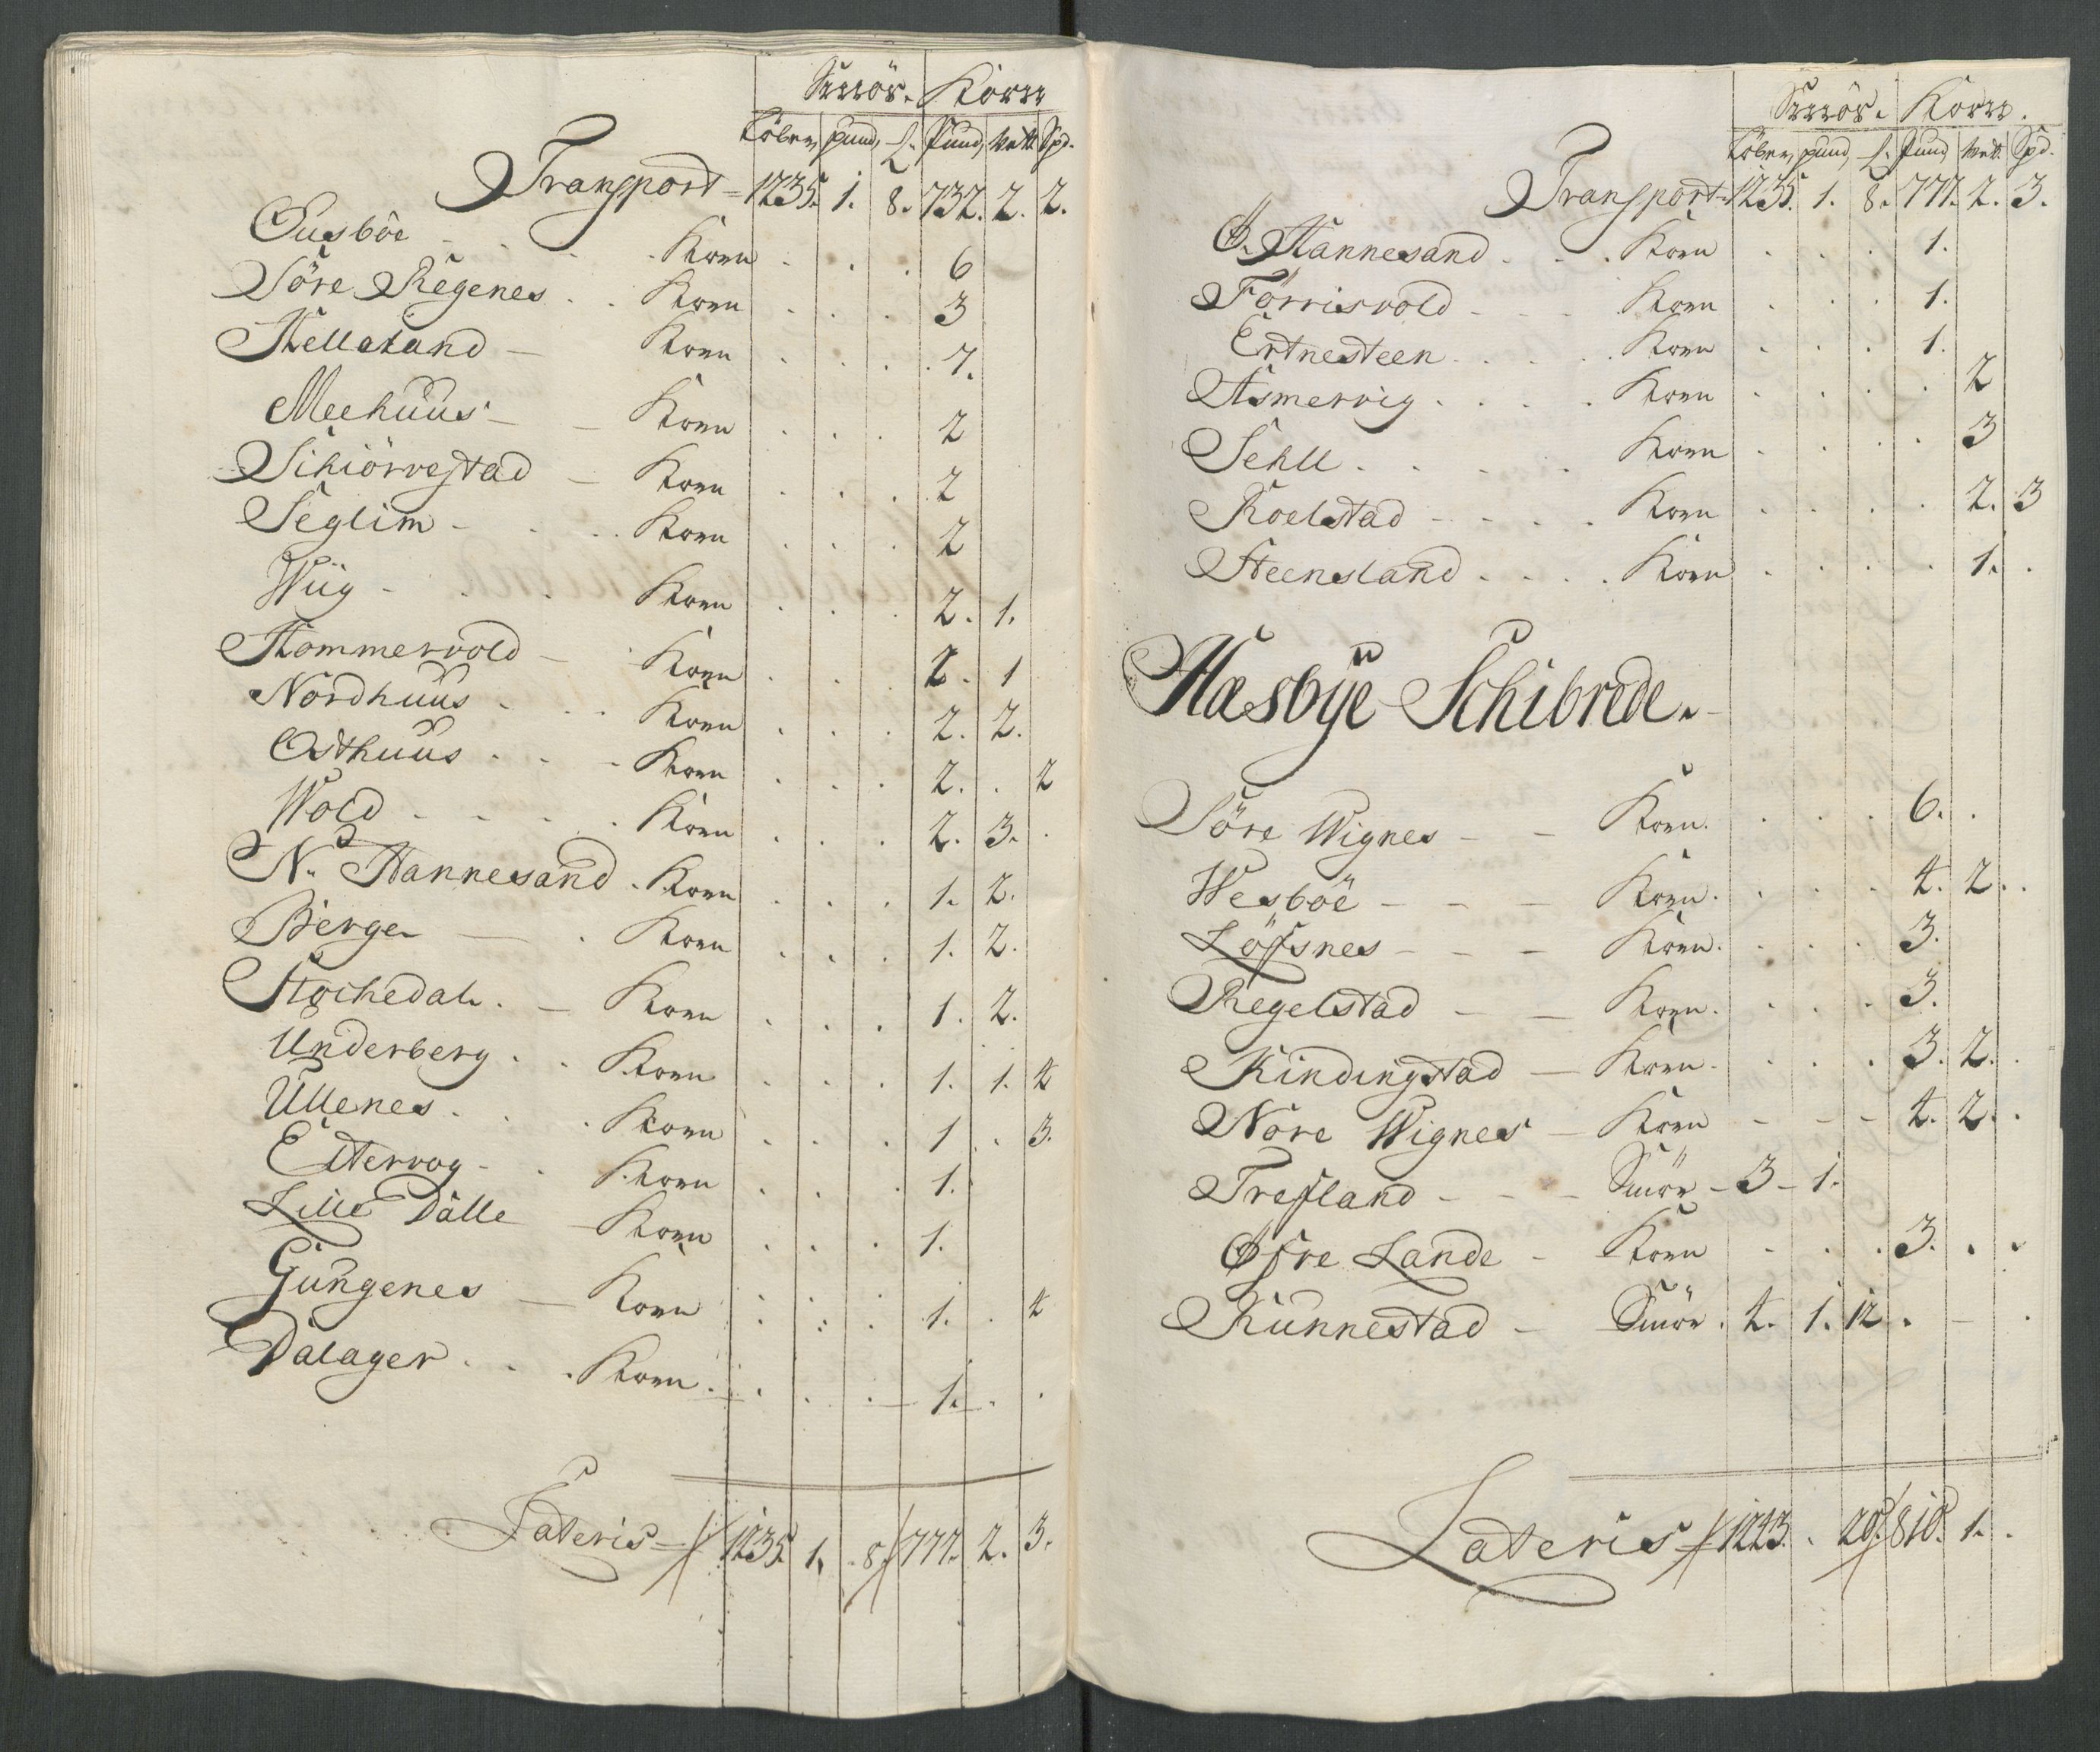 Smör. Korn
Löber, pund, ℔. Pund, Vett. Spd.
Transport = 1235. 1. 8. 732. 2. 2.
Susböe - . . Korn . . . 6
Söre Regenes . . Korn . . . 3
Helleland — Korn . . . 7.
Meehuus — — Korn . . . 2
Schiörvestad — Korn . . . 2
Seglim - . . Korn . . . 2
Wiig - . . Korn . . . 2. 1.
Hommervold — Korn . . . 2. 1
Nordhuus . . . Korn . . . 2. 2.
Osthuus . . - Korn . . . 2. . 2
Wold - - - . Korn . . . 2. 3. .
N. Hannesand . Korn . . . 1. 2.
Berge — . Korn . . . 1. 2.
Stochedal. — Korn . . . 1. 2.
Underberg . . Korn . . . 1. 1. 4
Ullenes . . . Korn . . . 1 . 3.
Eitervog - . Korn . . . 1.
Lille Dalle — Korn . . . 1.
Gungenes — Korn . . . 1. . 4
Dalager . . . Korn . . . 1. . .
Lateris = 1235. 1. 8. 777. 2. 3.
Smör. Korn.
Löber, pund, ℔. Pund, Vett. Spd.
Transport = 1235. 1. 8. 777. 2. 3.
Ø. Hannesand . . . Korn . . . 1.
Förrisvold - - - Korn . . . 1.
Ertnesteen . . . . Korn . . . 1.
Asmervig . . . . Korn . . . . 2
Sehll . . . . Korn . . . . 3
Roelstad - - - . Korn . . . . 2. 3
Steensland . . . . Korn . . . . 1. .
Hæsbÿe Schibrede.
Söre Wignes — — Korn. . . . 6. .
Wesböe — — — Korn. . . . 4. 2. .
Löfsnes — — — Korn. . . . 3.
Regelstad — — Korn. . . . 3.
Kindingstad — Korn. . . . 3. 2. .
Nore Wignes — Korn - - - 4. 2. .
Trefland - - - Smör - 3 - 1.
Øfre Lande - Korn . . . 3. . .
Runnestad - Smör . 4. 1. 12 . - .
Lateris = 1243. . 20. 810. 1. .